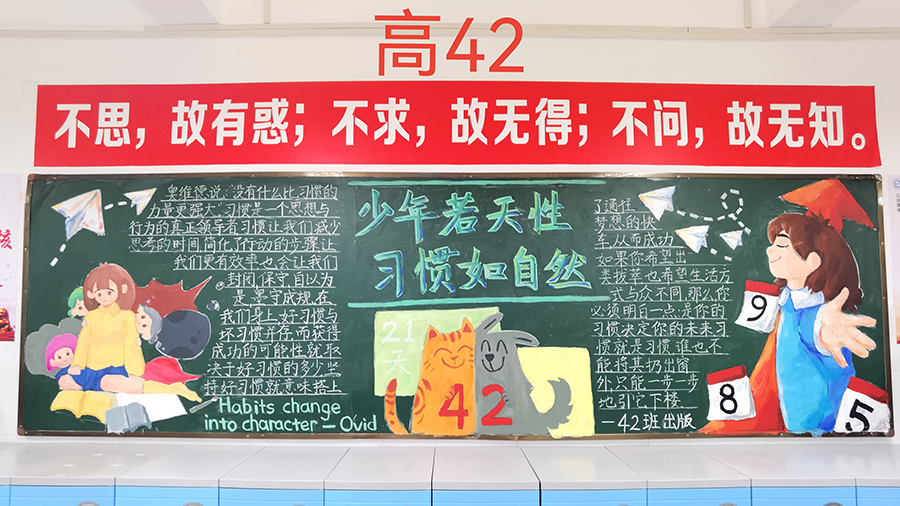 高42
不思，故有惑；不求，故无得；不问，故无知。
奥维德说：没有什么比习惯的
力量更强大；习惯是一个思想与
行为的真正领导者习惯让我们减少
思考的时间,简化了行动的步骤让
我们更有效率也会让我们
封闭,保守,自以为
是,墨守成规,在
我们身上,好习惯与
坏习惯并存,而获得
成功的可能性就取
决于好习惯的多少,坚
持好习惯就意味搭上
Habits change
into character — Ovid
少年若天性
习惯如自然
21
天
42
了通往
梦想的快
车,从而成功
如果你希望出
类拔萃也希望生活方
式与众不同,那么你
必须明白一点,是你的
习惯决定你的未来习
惯就是习惯谁也不
能将其扔出窗
外,只能一步一步
地引它下楼
—42班出版
9
8
5